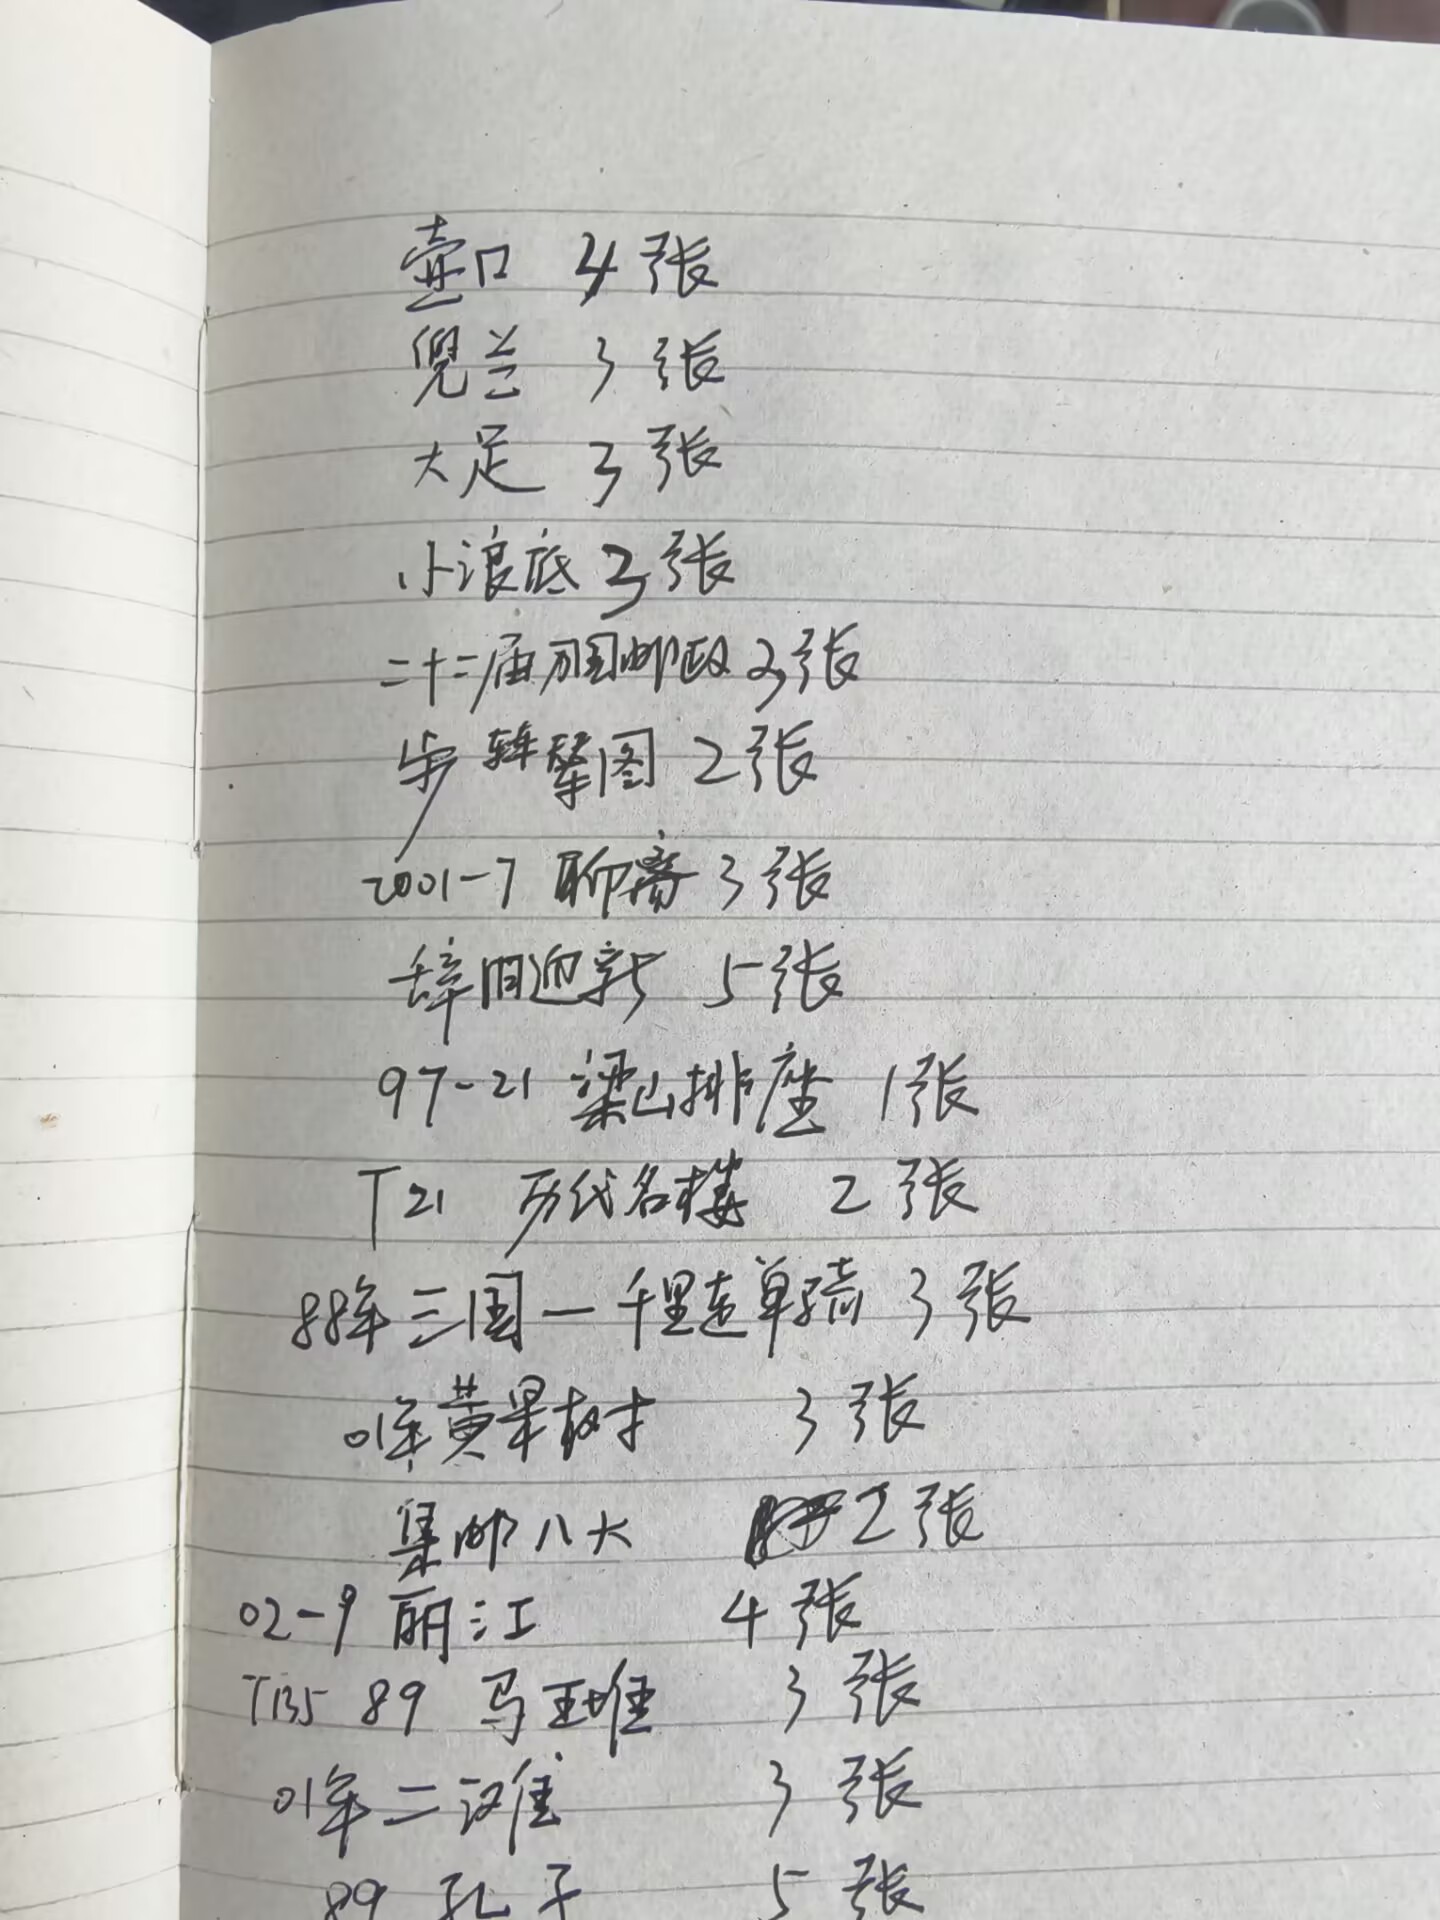 壶口 4张
兜兰 3张
大足 3张
小浪底 3张
二十二届万国邮政 3张
步辇图 2张
2001-7 聊斋 3张
辞旧迎新 5张
97-21 梁山排座 1张
T21 历代名楼 2张
88年三国一千里走单骑 3张
01年黄果树 3张
集邮八大 2张
02-9 丽江 4张
T135 89 马王堆 3张
01年二滩 3张
89 孔子 5张